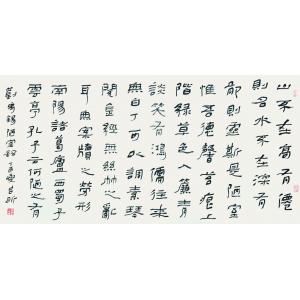 山不在高有僊
則名水不在深有
龍則靈斯是陋室
惟吾德馨苔痕上
階綠草色入簾青
談笑有鴻儒往來
無白丁可以調素琴
閱金經無絲竹之亂
耳無案牘之勞形
南陽諸葛廬西蜀子
雲亭孔子云何陋之有
劉禹錫陋室銘